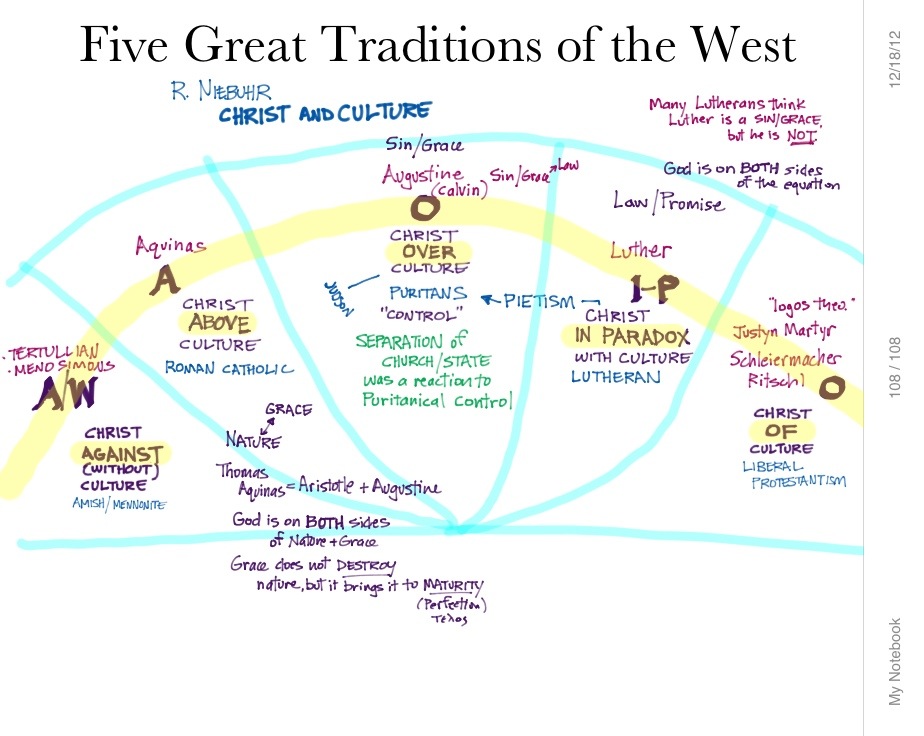 Five Great Traditions of the West
R. NIEBUHR
CHRIST AND CULTURE
Many Lutherans think
Luther is a SIN/GRACE,
but he is NOT.
God is on BOTH sides
of the equation
Law/Promise
Sin/Grace
Augustine
(Calvin)
Sin/Grace Law
O
CHRIST
OVER
CULTURE
JUDSON
PURITANS
"CONTROL"
PIETISM
SEPARATION of
CHURCH/STATE
was a reaction to
Puritanical Control
Aquinas
A
CHRIST
ABOVE
CULTURE
ROMAN CATHOLIC
Luther
I-P
CHRIST
IN PARADOX
WITH CULTURE
LUTHERAN
"logos theo."
Justyn Martyr
Schleiermacher
Ritschl
O
CHRIST
OF
CULTURE
LIBERAL
PROTESTANTISM
· TERTULLIAN
· MENO SIMONS
A/W
CHRIST
AGAINST
(WITHOUT)
CULTURE
AMISH/MENNONITE
GRACE
NATURE
Thomas
Aquinas = Aristotle + Augustine
God is on BOTH sides
of Nature + Grace
Grace does not DESTROY
nature, but it brings it to MATURITY
(Perfection)
12/18/12
108 / 108
My Notebook